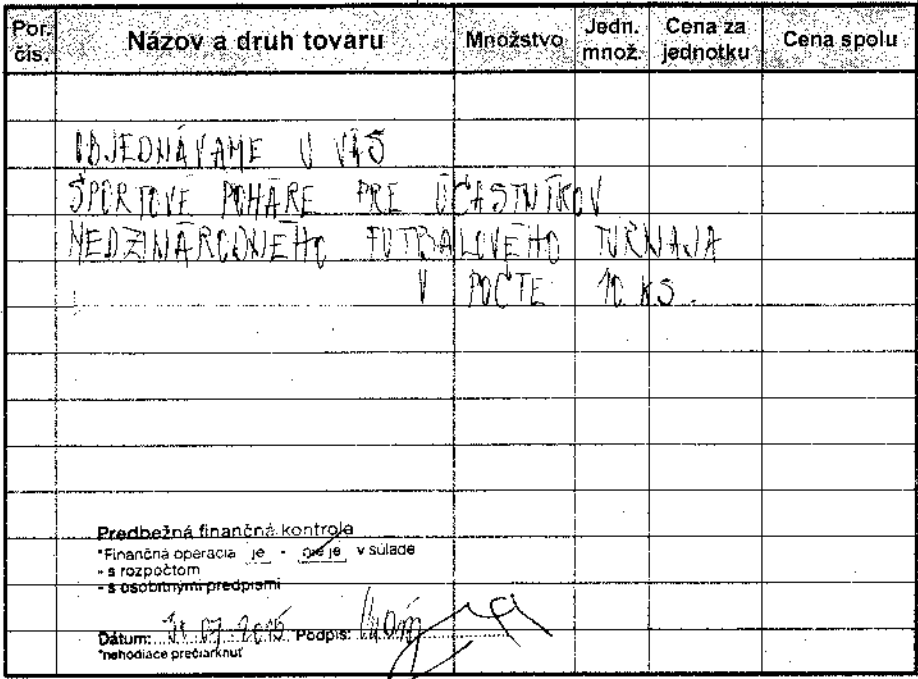 Por. čís. Názov a druh tovaru Množstvo Jedn. množ. Cena za jednotku Cena spolu
OBJEDNÁVAME U VÁS
ŠPORTOVÉ POHÁRE PRE ÚČASTNÍKOV
MEDZINÁRODNÉHO FUTBALOVÉHO TURNAJA
V POČTE 10 KS.
Predbežná finančná kontrola
*Finančná operácia je - nie je v súlade
- s rozpočtom
- s osobitnými predpismi
Dátum: 07. Podpis:
*nehodiace prečiarknuť